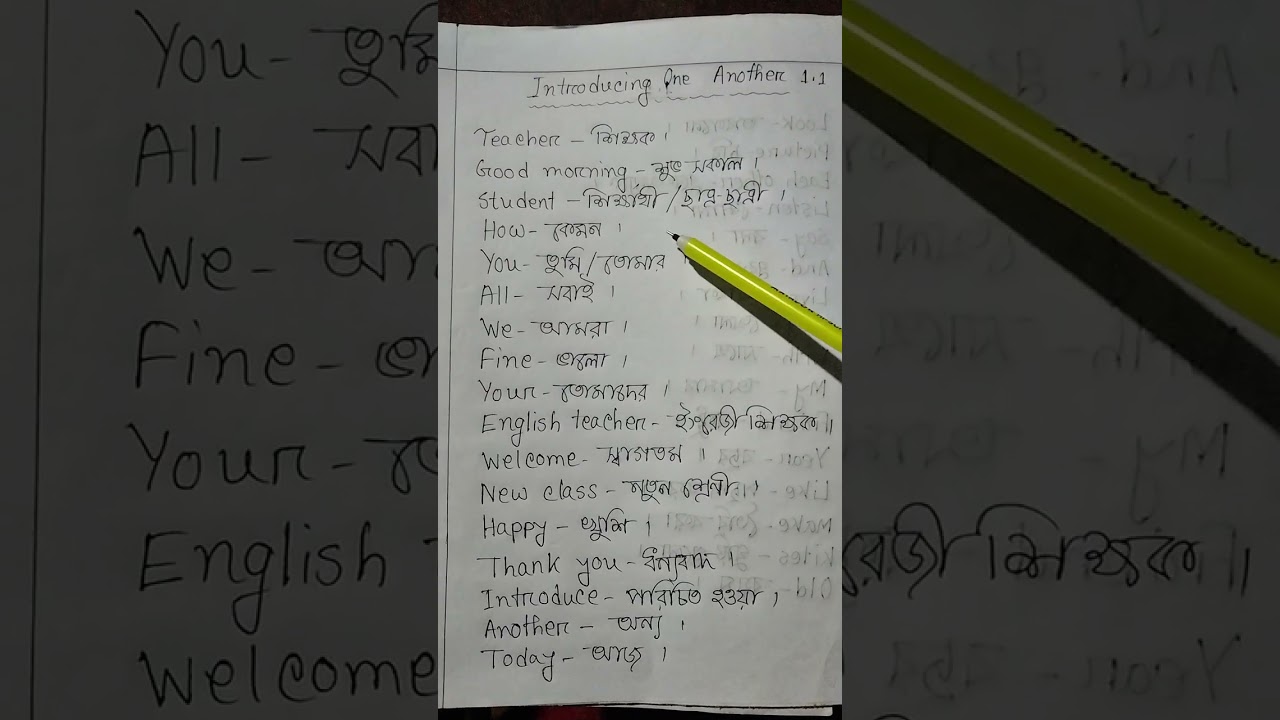 Introducing One Another 1.1
Teacher - শিক্ষক।
Good morning - শুভ সকাল।
Student - শিক্ষার্থী / ছাত্র-ছাত্রী।
How - কেমন।
You - তুমি / তোমার
All - সবাই।
We - আমরা।
Fine - ভালো।
Your - তোমাদের।
English teacher - ইংরেজী শিক্ষক॥
Welcome - স্বাগতম॥
New class - নতুন শ্রেণী।
Happy - খুশি।
Thank you - ধন্যবাদ।
Introduce - পরিচিত হওয়া,
Another - অন্য।
Today - আজ।